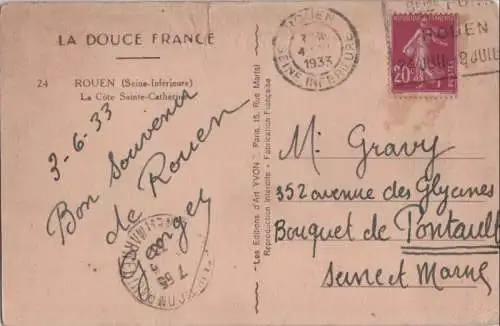 LA DOUCE FRANCE
24 ROUEN (Seine-Inférieure)
La Côte Sainte-Catherine
3-6-33
Bon Souvenir
de Rouen
"Les Editions d'Art YVON", Paris, 15, Rue Martel
Reproduction Interdite - Fabrication Française
ROUEN
1933
SEINE INFERIEURE
ROUEN
JUIL
REPUBLIQUE FRANCAISE
20c
POSTES
M: Gravy
352 avenue des Glycines
Bouquet de Pontault
Seine et Marne